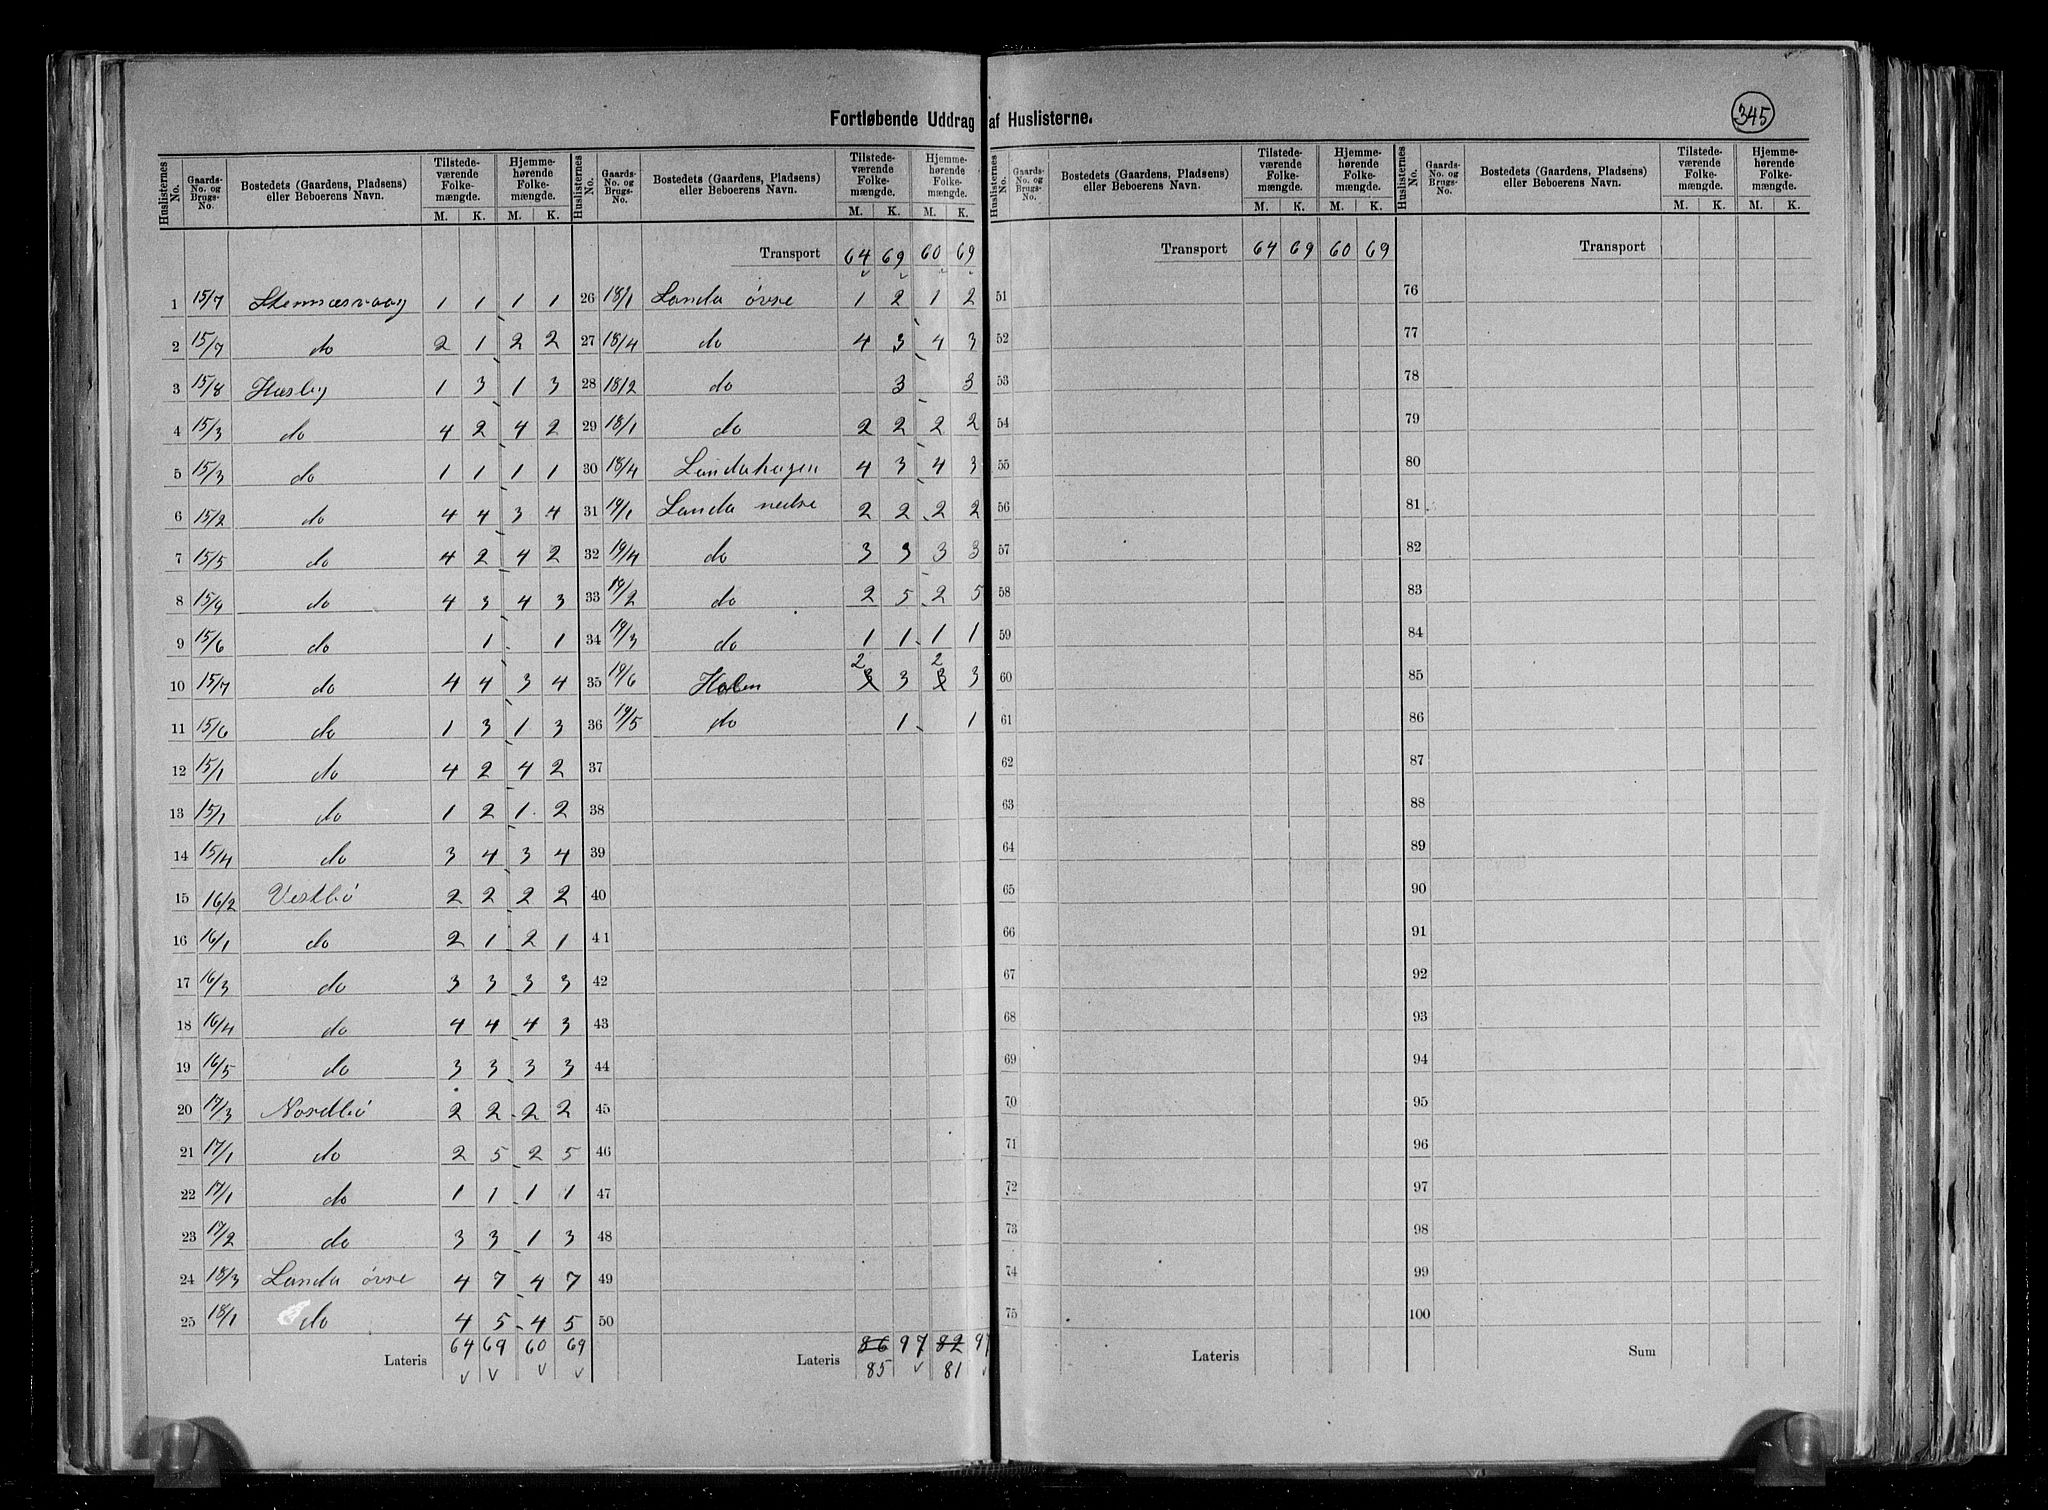 Fortløbende Uddrag af Huslisterne.
345
Huslisternes No. | Gaards-No. og Brugs-No. | Bostedets (Gaardens, Pladsens) eller Beboerens Navn. | Tilstede-værende Folke-mængde. M. K. | Hjemme-hørende Folke-mængde. M. K.
1 15/7 1 1 1 1
2 15/7 do 2 1 2 2
3 15/8 Hæsby 1 3 1 3
4 15/3 do 4 2 4 2
5 15/3 do 1 1 1 1
6 15/2 do 4 4 3 4
7 15/5 do 4 2 4 2
8 15/9 do 4 3 4 3
9 15/6 do 1 1
10 15/7 do 4 4 3 4
11 15/6 do 1 3 1 3
12 15/1 do 4 2 4 2
13 15/1 do 1 2 1 2
14 15/4 do 3 4 3 4
15 16/2 Vestbö 2 2 2 2
16 16/1 do 2 1 2 1
17 16/3 do 3 3 3 3
18 16/4 do 4 4 4 3
19 16/5 do 3 3 3 3
20 17/3 Nordbö 2 2 2 2
21 17/1 do 2 5 2 5
22 17/1 do 1 1 1 1
23 17/2 do 3 3 1 3
24 18/3 Landa övre 4 7 4 7
25 18/1 do 4 5 4 5
Lateris 64 69 60 69
Huslisternes No. | Gaards-No. og Brugs-No. | Bostedets (Gaardens, Pladsens) eller Beboerens Navn. | Tilstede-værende Folke-mængde. M. K. | Hjemme-hørende Folke-mængde. M. K.
Transport 64 69 60 69
26 18/1 Landa övre 1 2 1 2
27 18/4 do 4 3 4 3
28 18/2 do 3 3
29 18/1 do 2 2 2 2
30 18/4 Landahagen 4 3 4 3
31 19/1 Landa nedre 2 2 2 2
32 19/4 do 3 3 3 3
33 19/2 do 2 5 2 5
34 19/3 do 1 1 1 1
35 19/6 Holen 3 2 3 3 2 3
36 19/5 do 1 1
37
38
39
40
41
42
43
44
45
46
47
48
49
50
Lateris 86 97 82 97
85 81
Huslisternes No. | Gaards-No. og Brugs-No. | Bostedets (Gaardens, Pladsens) eller Beboerens Navn. | Tilstede-værende Folke-mængde. M. K. | Hjemme-hørende Folke-mængde. M. K.
Transport 64 69 60 69
51
52
53
54
55
56
57
58
59
60
61
62
63
64
65
66
67
68
69
70
71
72
73
74
75
Lateris
Huslisternes No. | Gaards-No. og Brugs-No. | Bostedets (Gaardens, Pladsens) eller Beboerens Navn. | Tilstede-værende Folke-mængde. M. K. | Hjemme-hørende Folke-mængde. M. K.
Transport
76
77
78
79
80
81
82
83
84
85
86
87
88
89
90
91
92
93
94
95
96
97
98
99
100
Sum